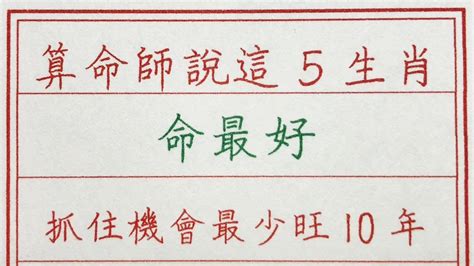 算命師說這5生肖
命最好
抓住機會最少旺10年